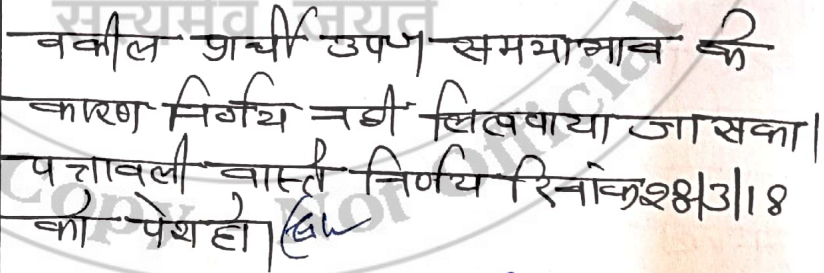 सत्यमेव जयते
वकील प्रार्थी उप० समयाभाव के
कारण निर्णय नही लिखवाया जा सका।
पत्रावली वास्ते निर्णय दिनांक 28/3/18
को पेश हो।
Copy Not Official